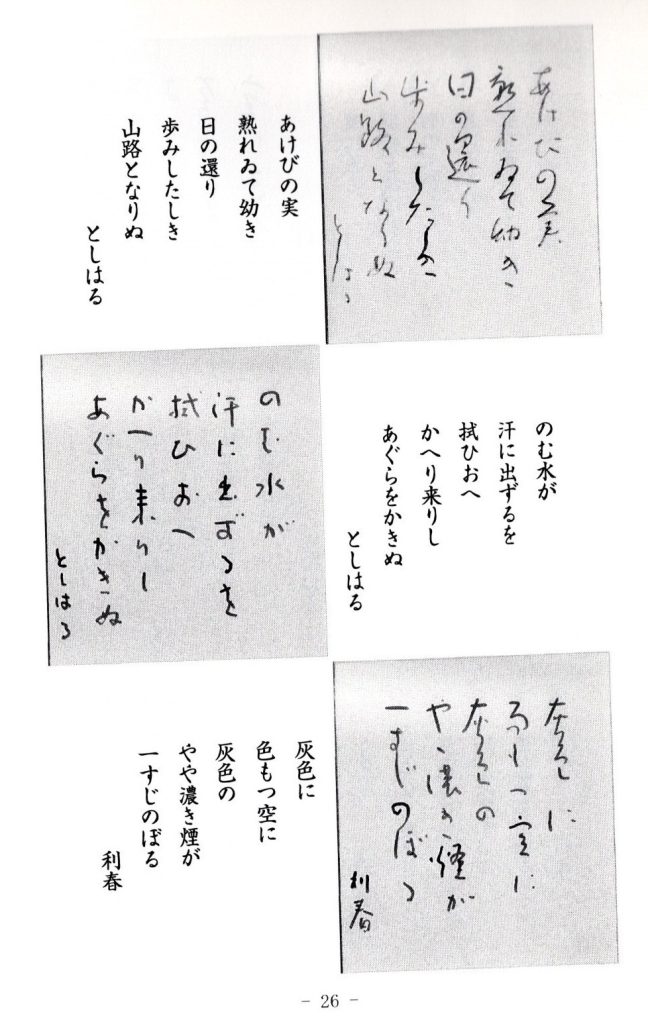 あけびの実
熟れゐて幼き
日の還り
歩みしたしき
山路となりぬ
としはる
あけびの実
熟れゐて幼き
日の還り
歩みしたしき
山路となりぬ
としはる
のむ水が
汗に出ずるを
拭ひおへ
かへり来りし
あぐらをかきぬ
としはる
のむ水が
汗に出ずるを
拭ひおへ
かへり来りし
あぐらをかきぬ
としはる
灰色に
色もつ空に
灰色の
やゝ濃き煙が
一すじのぼる
利春
灰色に
色もつ空に
灰色の
やや濃き煙が
一すじのぼる
利春
- 26 -